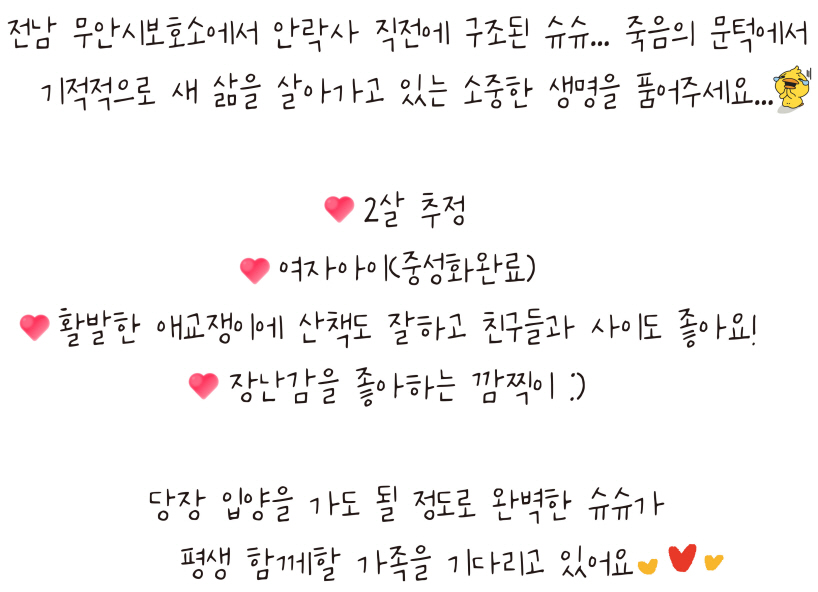 전남 무안시보호소에서 안락사 직전에 구조된 슈슈... 죽음의 문턱에서
기적적으로 새 삶을 살아가고 있는 소중한 생명을 품어주세요...
2살 추정
여자아이(중성화완료)
활발한 애교쟁이에 산책도 잘하고 친구들과 사이도 좋아요!
장난감을 좋아하는 깜찍이 :)
당장 입양을 가도 될 정도로 완벽한 슈슈가
평생 함께할 가족을 기다리고 있어요